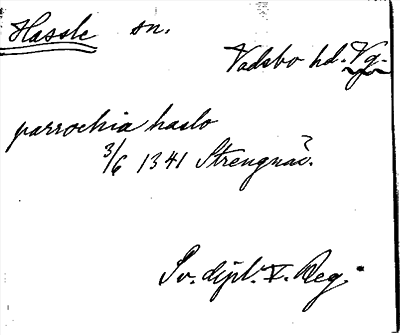 Hassle sn.
Vadsbo hd. Vg.
parrochia haslo
3/6 1341 Strengnäs.
Sv. dipl. V. Reg.